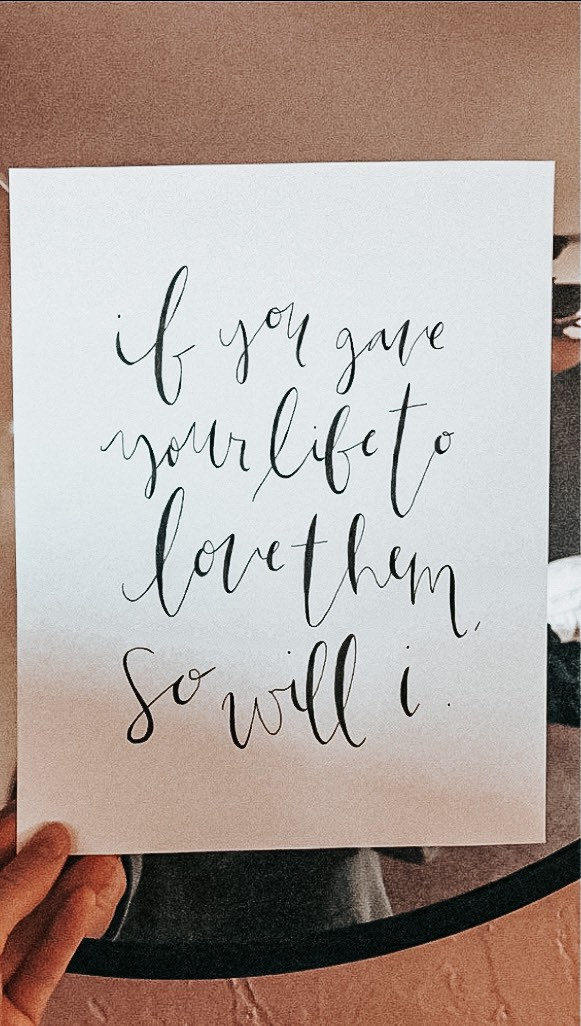 if you gave
your life to
love them,
so will i.